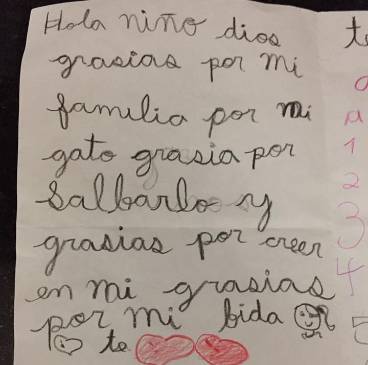 Hola niño dios
grasias por mi
familia por mi
gato grasia por
salbarlo y
grasias por creer
en mi grasias
por mi bida
yo te